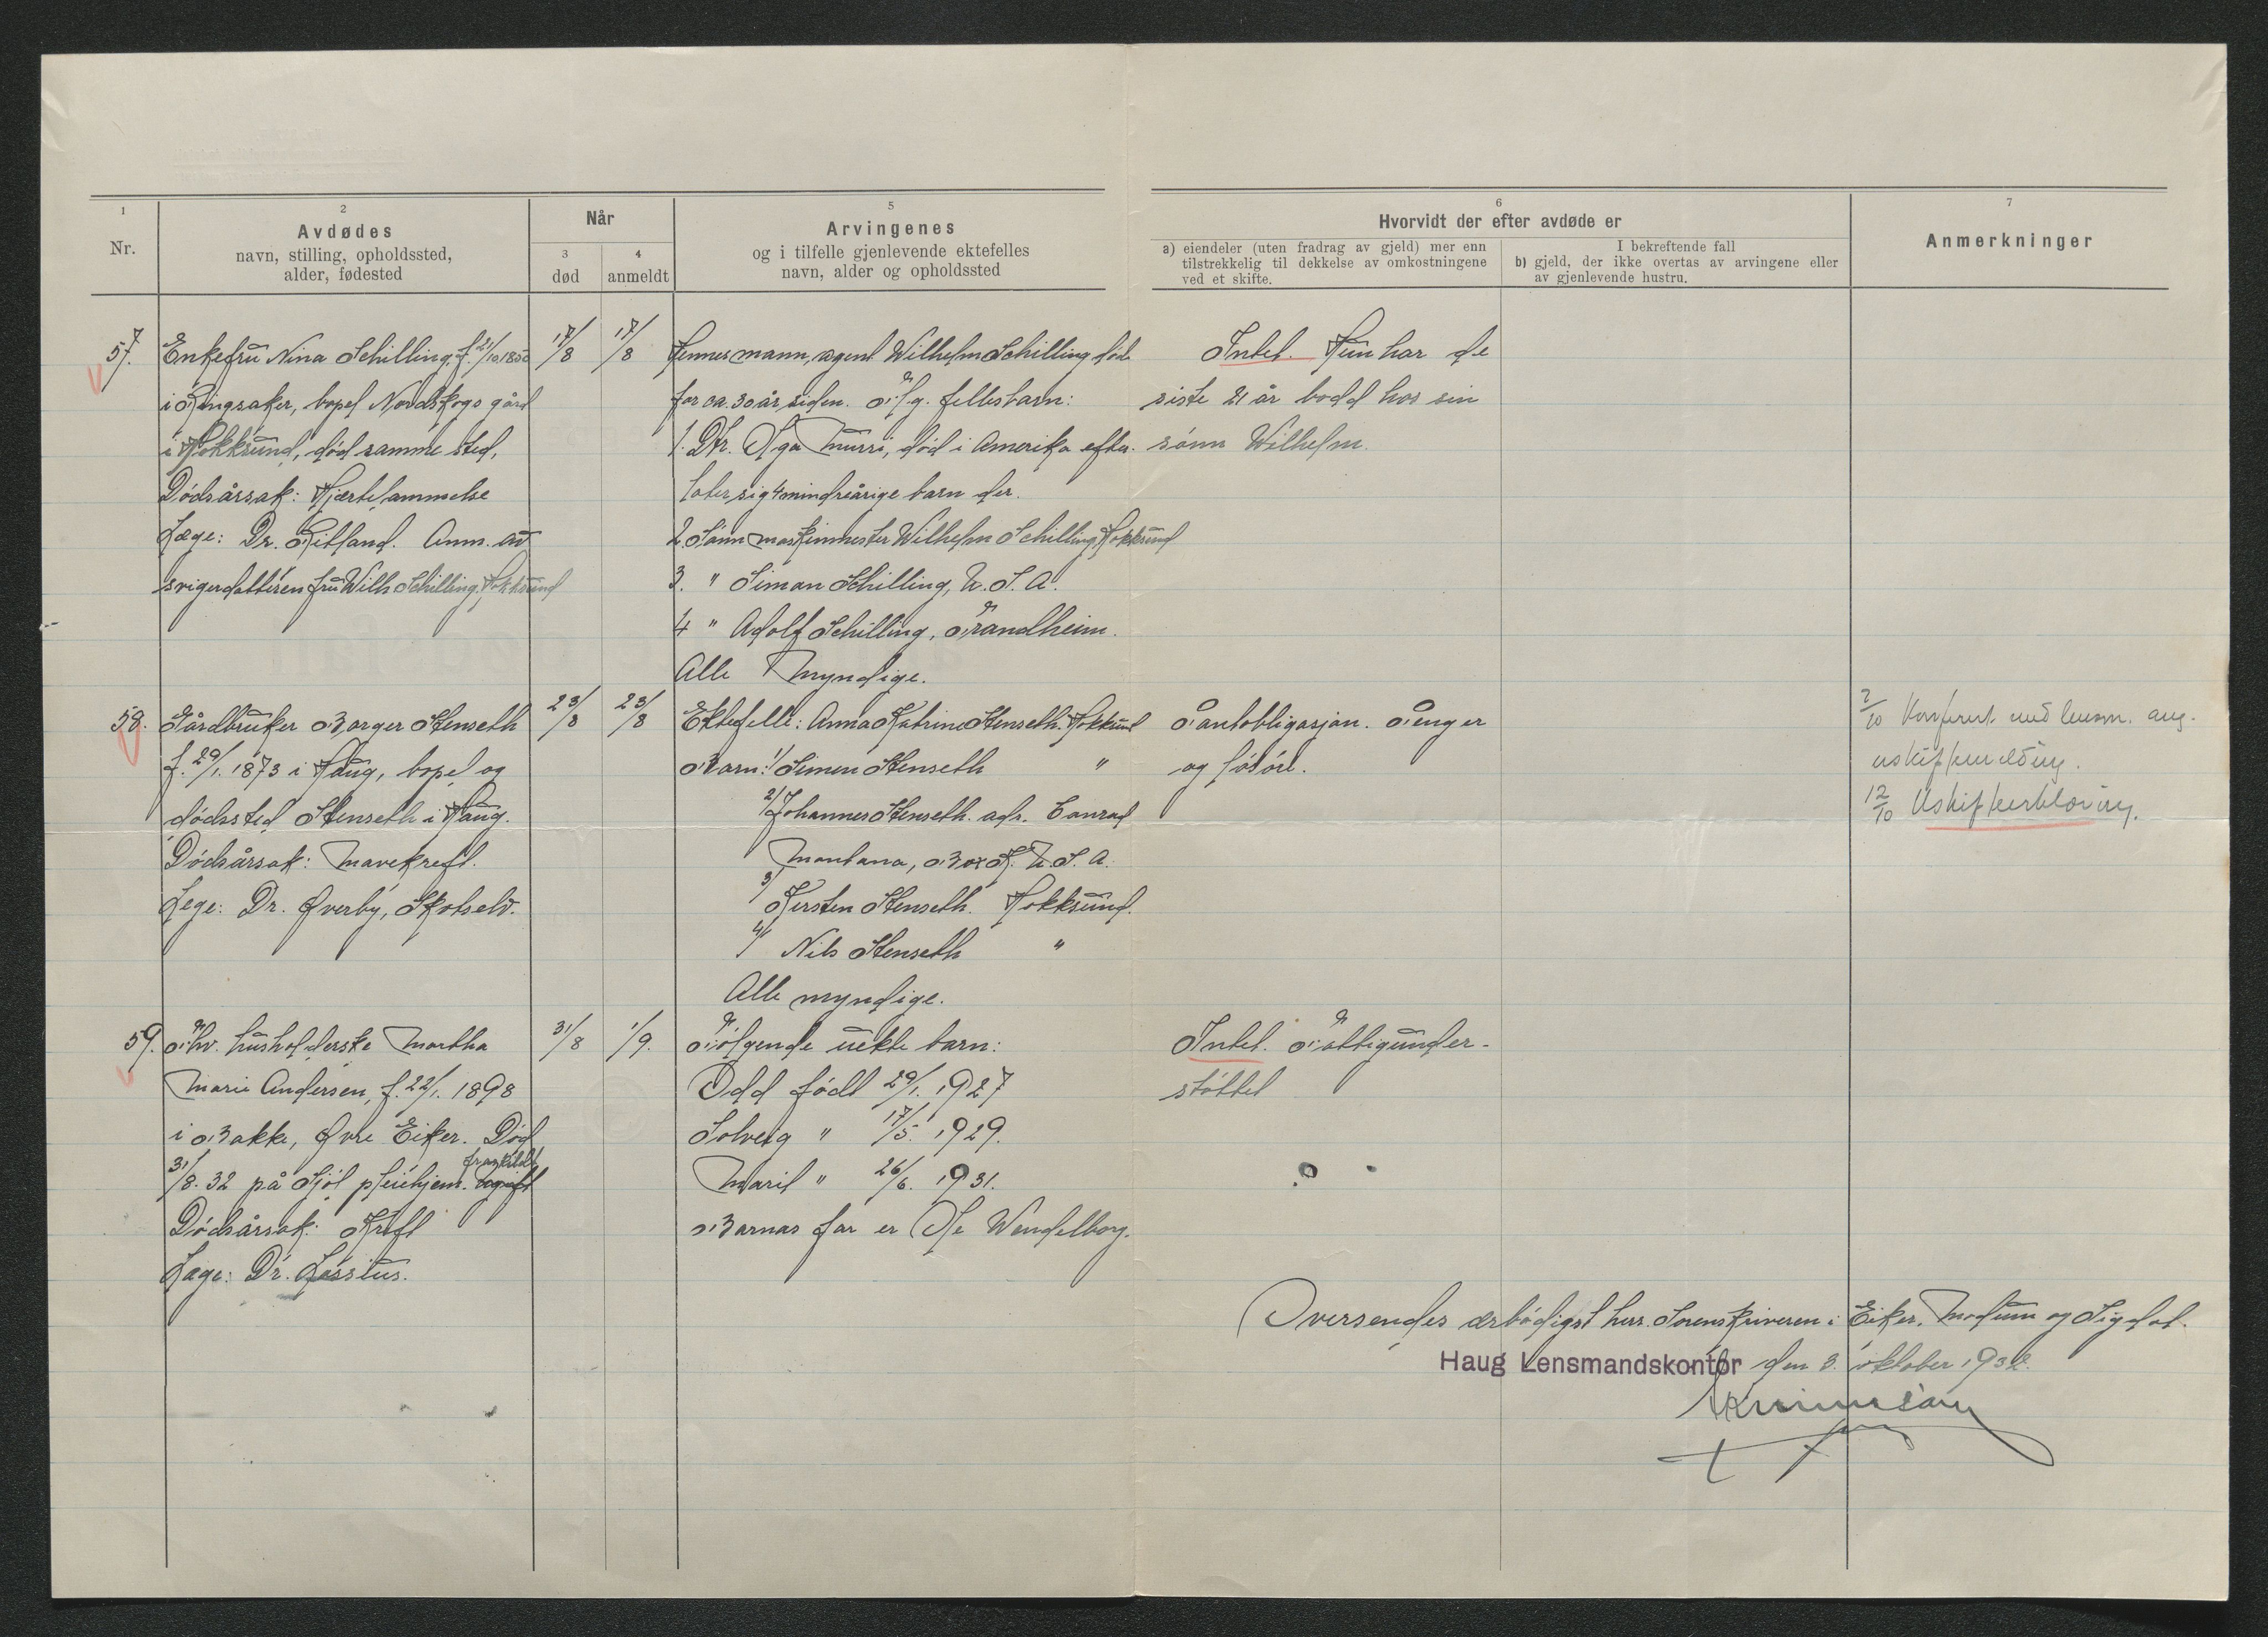 1
Nr.
2
Avdødes
navn, stilling, opholdssted,
alder, fødested
Når
3
død
4
anmeldt
5
Arvingenes
og i tilfelle gjenlevende ektefelles
navn, alder og opholdssted
6
Hvorvidt der efter avdøde er
a) eiendeler (uten fradrag av gjeld) mer enn
tilstrekkelig til dekkelse av omkostningene
ved et skifte.
I bekreftende fall
b) gjeld, der ikke overtas av arvingene eller
av gjenlevende hustru.
7
Anmerkninger
57.
Enkefru Nina Schilling, f. 21/10 1850
i Ringsaker, bopel Nordskogs gård
i Hokksund, død samme sted,
Dødsårsak: Hjertelammelse
Læge: Dr. Ritland. Anm. av
svigerdatteren fru Wilh Schilling, Hokksund
17/8
17/8
Hennes mann, agent Wilhelm Schilling døde
for ca. 30 år siden. Følg. fellesbarn:
1. Dtr. Olga Murri, død i Amerika efter-
later sig 4 mindreårige barn der.
2. Sønn maskinmester Wilhelm Schilling, Hokksund
3. " Siman Schilling, U.S.A.
4 " Adolf Schilling, Trandheim.
Alle Myndige.
Intet. Hun har de
siste 21 år bodd hos sin
sønn Wilhelm.
58.
Gårdbruker Borger Stenseth
f. 29/1. 1873 i Haug, bopel og
dødssted Stenseth i Haug.
Dødsårsak: Mavekreft.
Lege: Dr. Øverby, Skotselv.
23/8
23/8
Ektefelle: Anna Katrine Stenseth. Hokksund
Barn: 1/ Simen Stenseth "
2/ Johannes Stenseth. adr. Conrad
Montana, Box K. U.S.A.
3/ Kersten Stenseth. Hokksund.
4/ Nils Stenseth "
Alle myndige.
Pantobligasjon. Penger
og løsøre.
2/10 Konferert med lensm. ang.
uskiftemelding.
12/10 Uskifteerklæring.
59.
Fhv. husholderske Martha
Marie Andersen, f. 22/1. 1898
i Bakke, Øvre Eiker. Død
31/8. 32 på Sjøl pleiehjem. fraskildt
Dødsårsak: Kreft
Læge: Dr.
31/8
1/9.
Følgende uekte barn:
Odd født 29/1. 1927
Solveig " 17/5. 1929.
Marit " 26/6. 1931.
Barnas far er Ole Wendelborg.
Intet. Fattigunder-
støttet
Oversendes ærbødigst herr Sorenskriveren i Eiker, Modum og Sigdal.
Haug Lensmandskontor den 3. oktober 1932.